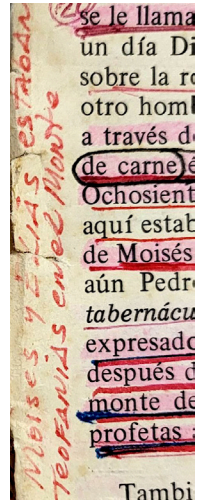 se le llama
un día Di
sobre la ro
otro homb
a través de
de carne é
Ochosient
aquí estab
de Moisés
aún Pedro
tabernácu
expresado
después d
monte de
profetas
Tambi
MOISES Y ELIAS ESTABAN
TEOFANIAS en el Monte